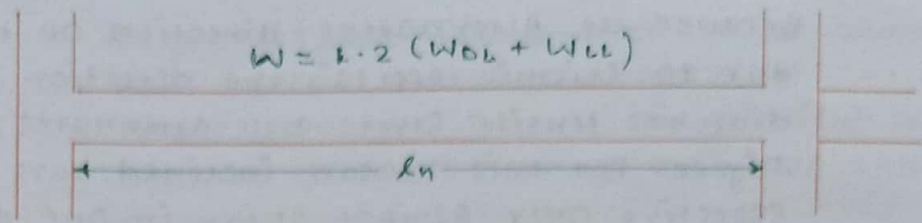 W = 1.2 (WDL + WLL)
ln